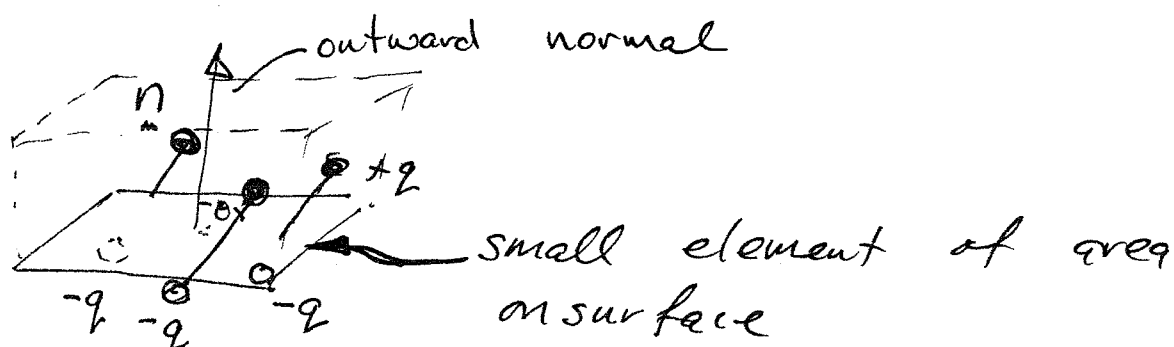 outward normal
n
+q
small element of area
on surface
-q
-q
-q